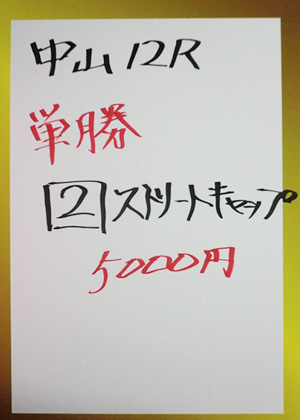 中山12R
単勝
2 ストリートキャップ
5000円